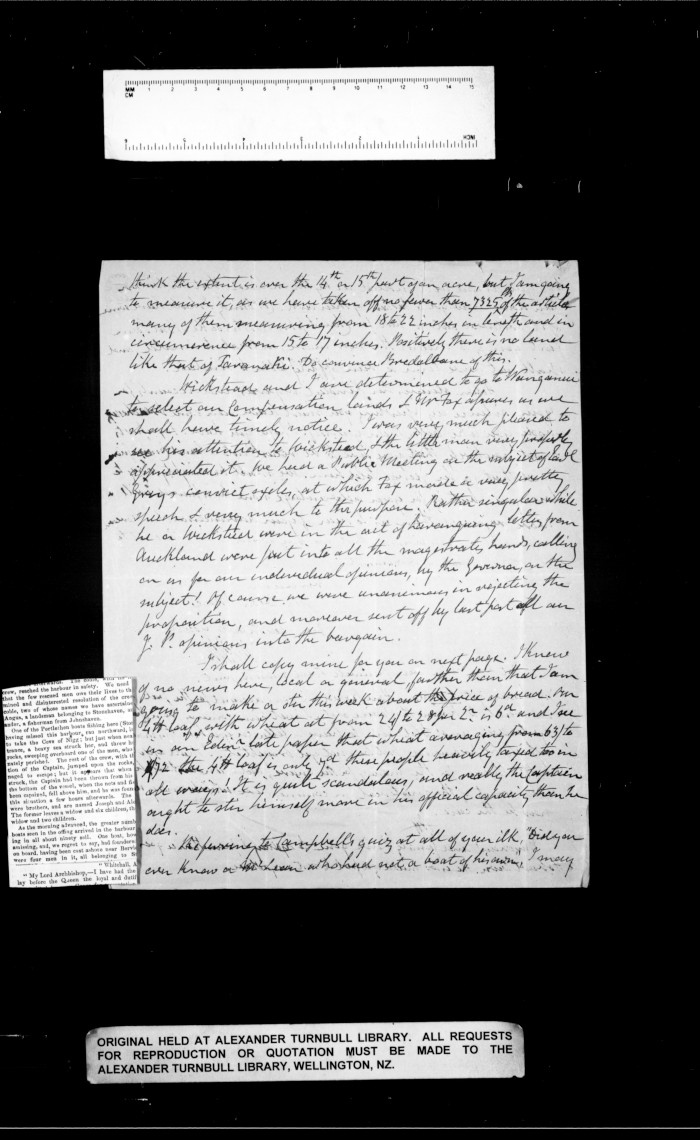 MM
CM
1 2 3 4 5 6 7 8 9 10 11 12 13 14 15
6 5 4 3 2 1 INCH
think the extent is over the 14th or 15th part of an acre, but I am going
to measure it, as we have taken off no fewer than 7325 of the article
many of them measuring from 18 to 22 inches in length and in
circumference from 15 to 17 inches. Positively there is no land
like that of Taranaki. Do convince Bredalbane of this.
Wicksteed and I are determined to go to Wanganui
to select our Compensation lands & Mr Fox assures us we
shall have timely notice. I was very much pleased to
see his attention to Wicksteed, & the little man very properly
appreciated it. We had a Public Meeting on the subject of Earl
Grey's convict exiles, at which Fox made a very pretty
speech & very much to the purpose. Rather singular while
he or Wicksteed were in the act of haranguing letters from
Auckland were put into all the magistrates hands, calling
on us for our individual opinions, by the Governor, on the
subject! Of course we were unanimous in rejecting the
proposition, and moreover sent off by last post all our
J. P. opinions into the bargain.
I shall copy mine for you on next page. I know
of no news here, local or general further than that I am
going to make a stir this week about the price of bread. Our
4 lb loaf, with wheat at from 24/ to 28 is 6d and I see
in an Edin late paper that wheat averaging from 63/ to
the 4 lb loaf is only these people heavily taxed too in
all ways! It is quite scandalous, and really the Captain
ought to stir himself more in his official capacity than he
does.
to Campbell's quiz at all of your ilk "Did you
ever know a McLean who had not a boat of his own", I may
crew, reached the harbour in safety. We need
that the few rescued men owe their lives to th
mined and disinterested resolution of the crew
coble, two of whose names we have ascertain
Angus, a landsman belonging to Stonehaven, a
ander, a fisherman from Johnshaven.
One of the Portlethen boats fishing here (Ston
having missed this harbour, ran northward, in
to take the Cove of Nigg; but just when ent
trance, a heavy sea struck her, and threw h
rocks, sweeping overboard one of the men, who
nately perished. The rest of the crew, with t
tion of the Captain, jumped upon the rocks
naged to escape; but it appears that when
struck, the Captain had been thrown from his
the bottom of the vessel, when the nets and fis
been repelled, fell above him, and he was found
this situation a few hours afterwards. The
were brothers, and are named Joseph and Ale
The former leaves a widow and six children, th
widow and two children.
As the morning advanced, the greater numb
boats seen in the offing arrived in the harbour
ing in all about ninety sail. One boat, how
amissing, and, we regret to say, had foundere
on board, having been cast ashore near Bervie
were four men in it, all belonging to S
"Whitehall, A
"My Lord Archbishop,—I have had the
lay before the Queen the loyal and dutif
ORIGINAL HELD AT ALEXANDER TURNBULL LIBRARY. ALL REQUESTS
FOR REPRODUCTION OR QUOTATION MUST BE MADE TO THE
ALEXANDER TURNBULL LIBRARY, WELLINGTON, NZ.